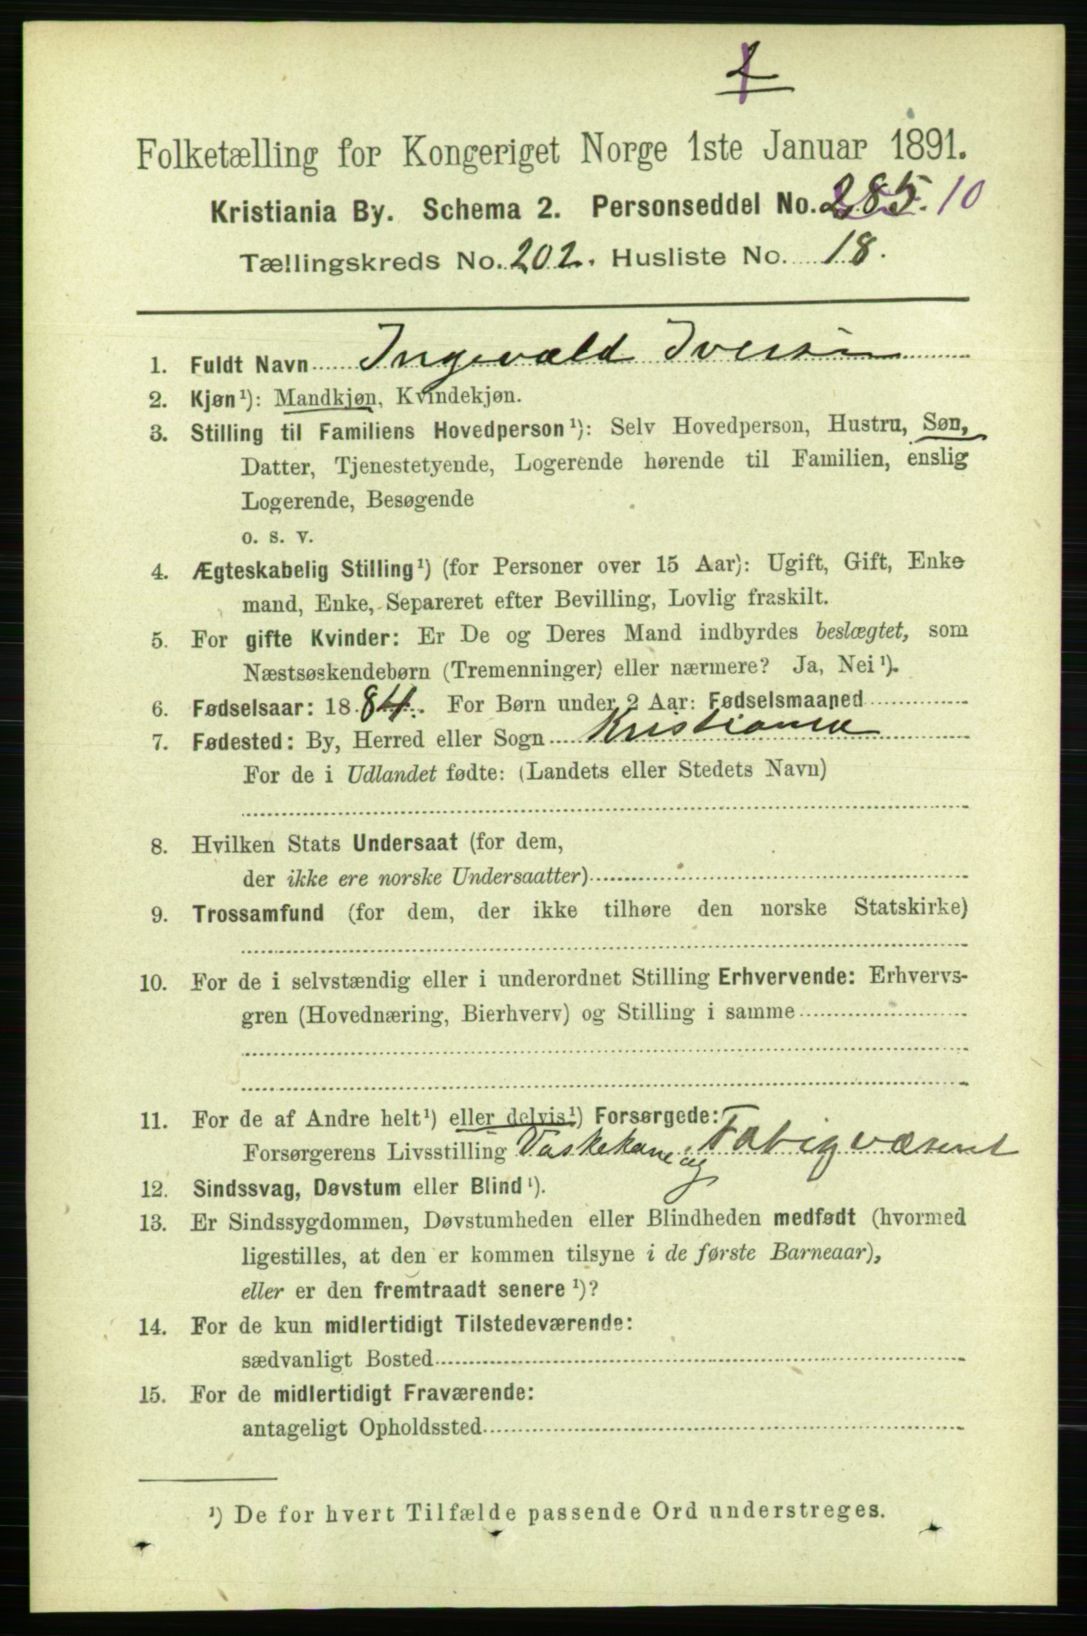 2
Folketælling for Kongeriget Norge 1ste Januar 1891.
Kristiania By. Schema 2. Personseddel No. 285. 10
Tællingskreds No. 202. Husliste No. 18.
1. Fuldt Navn Ingevald Iversen
2. Kjøn¹): Mandkjøn, Kvindekjøn.
3. Stilling til Familiens Hovedperson¹): Selv Hovedperson, Hustru, Søn,
Datter, Tjenestetyende, Logerende hørende til Familien, enslig
Logerende, Besøgende
o. s. v.
4. Ægteskabelig Stilling¹) (for Personer over 15 Aar): Ugift, Gift, Enke-
mand, Enke, Separeret efter Bevilling, Lovlig fraskilt.
5. For gifte Kvinder: Er De og Deres Mand indbyrdes beslægtet, som
Næstsøskendebørn (Tremenninger) eller nærmere? Ja, Nei¹).
6. Fødselsaar: 1884. For Børn under 2 Aar: Fødselsmaaned
7. Fødested: By, Herred eller Sogn Kristiania
For de i Udlandet fødte: (Landets eller Stedets Navn)
8. Hvilken Stats Undersaat (for dem,
der ikke ere norske Undersaatter)
9. Trossamfund (for dem, der ikke tilhøre den norske Statskirke)
10. For de i selvstændig eller i underordnet Stilling Erhvervende: Erhvervs-
gren (Hovednæring, Bierhverv) og Stilling i samme
11. For de af Andre helt¹) eller delvis¹) Forsørgede:
Forsørgerens Livsstilling Vaskekone og Fatigvæsent
12. Sindssvag, Døvstum eller Blind¹).
13. Er Sindssygdommen, Døvstumheden eller Blindheden medfødt (hvormed
ligestilles, at den er kommen tilsyne i de første Barneaar),
eller er den fremtraadt senere¹)?
14. For de kun midlertidigt Tilstedeværende:
sædvanligt Bosted
15. For de midlertidigt Fraværende:
antageligt Opholdssted
¹) De for hvert Tilfælde passende Ord understreges.